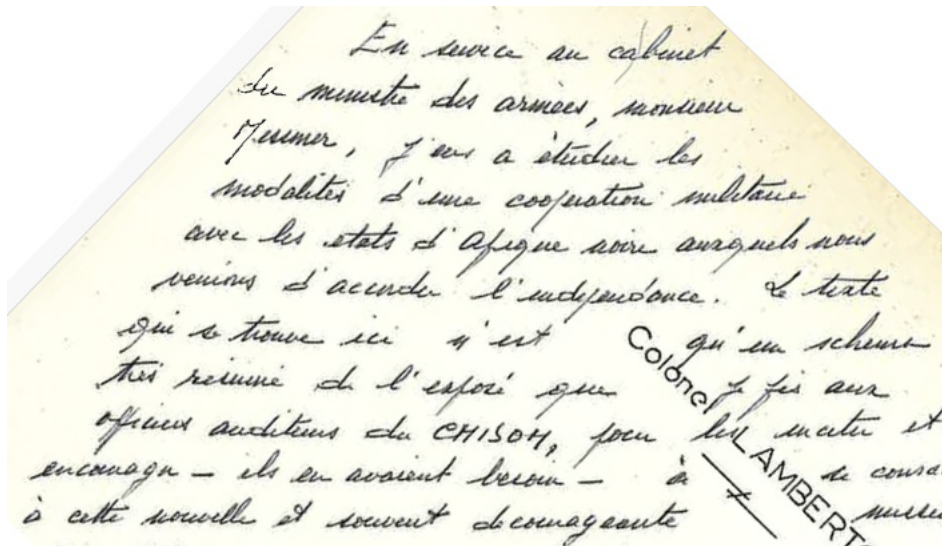 En service au cabinet
du ministre des armées, monsieur
Messmer, j'eus a étudier les
modalités d'une coopération militaire
avec les etats d'Afrique noire auxquels nous
venions d'accorder l'independance. Le texte
qui se trouve ici n'est qu'un schema
très résumé de l'exposé que je fis aux
officiers auditeurs du CMISOM, pour les inciter et
encourager – ils en avaient besoin – à se consa
à cette nouvelle et souvent decourageante missi
Colonel LAMBERT